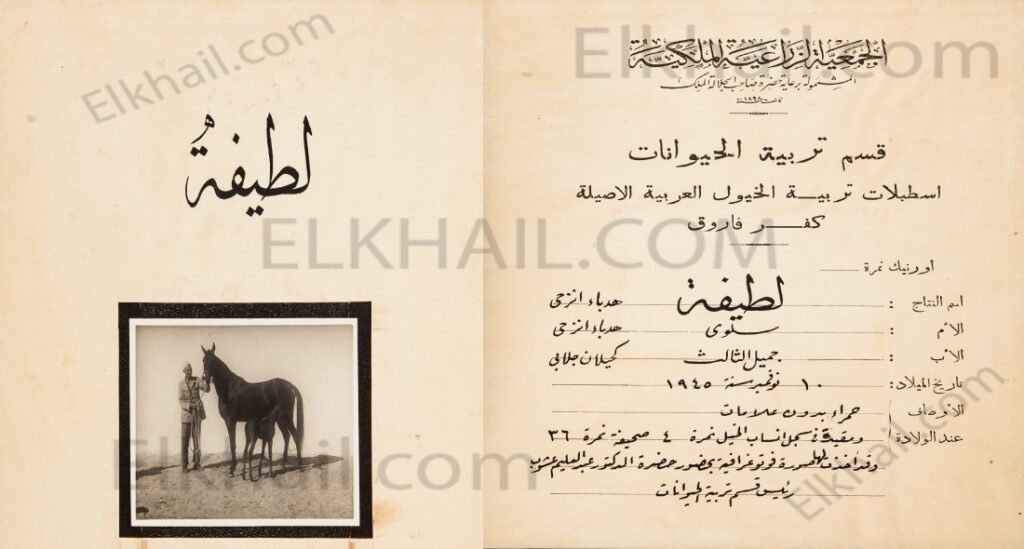 لطيفةُ
الجمعية الزراعية الملكية
المشمولة برعاية حضرة صاحب الجلالة الملك
تأسست ١٨٩٨
قسم تربية الحيوانات
اسطبلات تربية الخيول العربية الاصيلة
كفر فاروق
أورنيك نمرة
اسم النتاج : لطيفة هدباء انزحى
الأم : سلوى هدباء انزحى
الأب : جميل الثالث كحيلان جلابى
تاريخ الميلاد : ١٠ نوفمبر سنة ١٩٤٥
الأوصاف حمراء بدون علامات
عند الولادة ومقيدة فى سجل انساب الخيل نمرة ٤ صحيفة نمرة ٣٦
وقد اخذت الصورة فوتوغرافية بحضور حضرة الدكتور عبد العليم عشوب
رئيس قسم تربية الحيوانات
Elkhail.com
Elkhail.com
ELKHAIL.COM
Elkhail.com
Elkhail.com